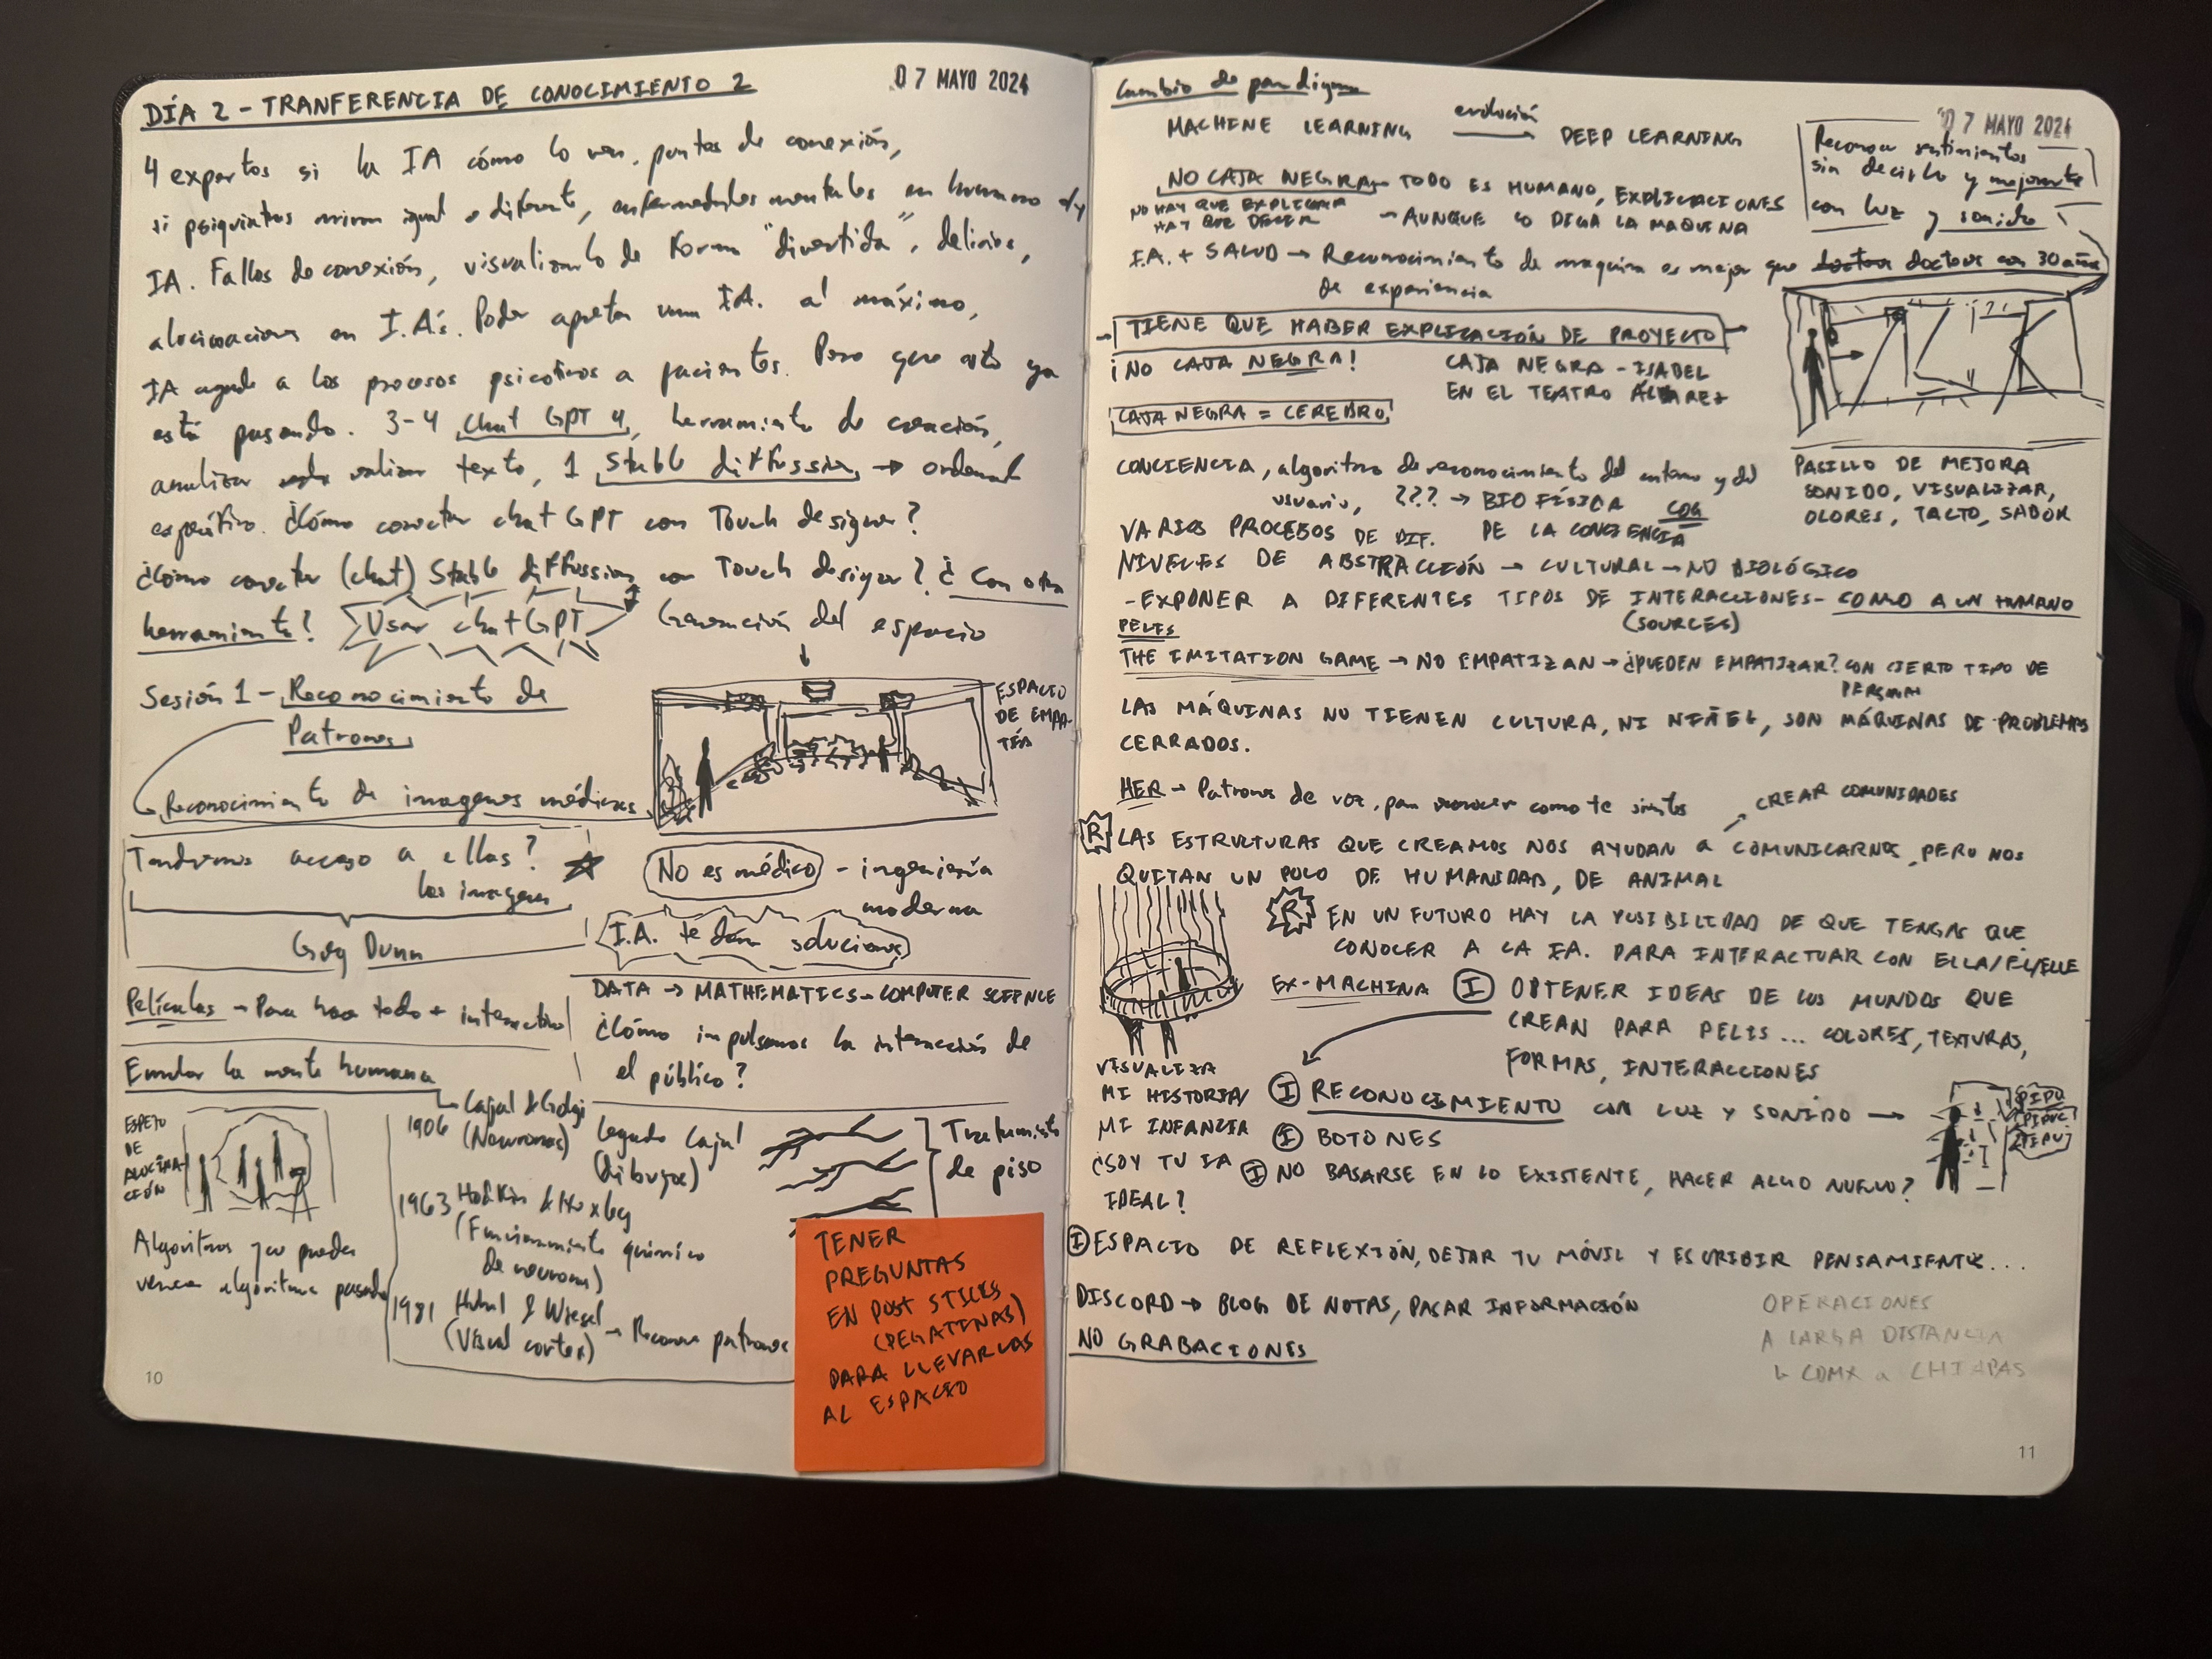 DÍA 2 - TRANFERENCIA DE CONOCIMIENTO 2
07 MAYO 2024
4 expertos si la IA cómo lo ven, puntos de conexión,
si psiquiatras miran igual o diferente, enfermedades mentales en humano y
IA. Fallos de conexión, visualizarlo de forma "divertida", delirios,
alucinaciones en I.A's. Poder apretar una IA. al máximo,
IA ayude a los procesos psicóticos a pacientes. Pero que esto ya
está pasando. 3-4 chat GPT 4, herramienta de creación,
analizar validar texto, 1 Stable diffussion → ordenar
específico. ¿Cómo conectar chat GPT con Touch designer?
¿Cómo conectar (chat) Stable diffussion con Touch designer? ¿Con otra
herramienta?
Usar chat GPT
Generación del espacio
Sesión 1 - Reconocimiento de
Patrones
ESPACIO
DE EMPA-
TÍA
Reconocimiento de imagenes médicas
Tendremos acceso a ellas?
las imagenes
Greg Dunn
No es médico - ingeniería
moderna
I.A. te dan soluciones
Películas → Para hacer todo + interactivo
DATA → MATHEMATICS → COMPUTER SCIENCE
¿Cómo impulsamos la interacción de
el público?
Emular la mente humana
ESPEJO
DE
ALUCINA-
CIÓN
1906 Cajal & Golgi
(Neuronas)
1963 Hodkin & Huxley
(Funcionamiento químico
de neurona)
1981 Hubel & Wiesel
(Visual cortex) → Reconoce patrones
Legado Cajal
(dibujos)
Tratamiento
de piso
Algoritmos que pueden
vencer algoritmos pasados
TENER
PREGUNTAS
EN POST STICKS
(PEGATINAS)
PARA LLEVARLAS
AL ESPACIO
10
Cambio de paradigma
07 MAYO 2024
MACHINE LEARNING evolución → DEEP LEARNING
Reconocer sentimientos
sin decirlo y mejorarte
con luz y sonido
NO CAJA NEGRA → TODO ES HUMANO, EXPLICACIONES
NO HAY QUE EXPLICAR
HAY QUE DECIR
- AUNQUE LO DIGA LA MAQUINA
I.A. + SALUD → Reconocimiento de maquina es mejor que doctores con 30 años
de experiencia
→ TIENE QUE HABER EXPLICACIÓN DE PROYECTO →
¡NO CAJA NEGRA!
CAJA NEGRA - ISABEL
EN EL TEATRO ÁLVAREZ
CAJA NEGRA = CEREBRO
PASILLO DE MEJORA
SONIDO, VISUALIZAR,
OLORES, TACTO, SABOR
CONCIENCIA, algoritmo de reconocimiento del entorno y del
usuario, ??? → BIO FÍSICA
DE LA CONCIENCIA
VARIOS PROCESOS DE DIF.
NIVELES DE ABSTRACCIÓN → CULTURAL → NO BIOLÓGICO
- EXPONER A DIFERENTES TIPOS DE INTERACCIONES - COMO A UN HUMANO
(SOURCES)
PELIS
THE IMITATION GAME → NO EMPATIZAN → ¿PUEDEN EMPATIZAR? CON CIERTO TIPO DE
PERSONA
LAS MÁQUINAS NO TIENEN CULTURA, NI NIÑEZ, SON MÁQUINAS DE PROBLEMAS
CERRADOS.
HER → Patrones de voz, para reconocer como te sientes
CREAR COMUNIDADES
R LAS ESTRUCTURAS QUE CREAMOS NOS AYUDAN a COMUNICARNOS, PERO NOS
QUITAN UN POCO DE HUMANIDAD, DE ANIMAL
R EN UN FUTURO HAY LA POSIBILIDAD DE QUE TENGAS QUE
CONOCER A LA IA. PARA INTERACTUAR CON ELLA/EL/ELLE
EX-MACHINA
I OBTENER IDEAS DE LOS MUNDOS QUE
CREAN PARA PELIS... COLORES, TEXTURAS,
FORMAS, INTERACCIONES
VISUALIZA
MI HISTORIA/
MI INFANCIA
¿SOY TU IA
IDEAL?
I RECONOCIMIENTO CON LUZ Y SONIDO →
I BOTONES
I NO BASARSE EN LO EXISTENTE, HACER ALGO NUEVO?
I ESPACIO DE REFLEXIÓN, DEJAR TU MÓVIL Y ESCRIBIR PENSAMIENTOS...
DISCORD → BLOG DE NOTAS, PASAR INFORMACIÓN
NO GRABACIONES
OPERACIONES
A LARGA DISTANCIA
↳ CDMX a CHIAPAS
11